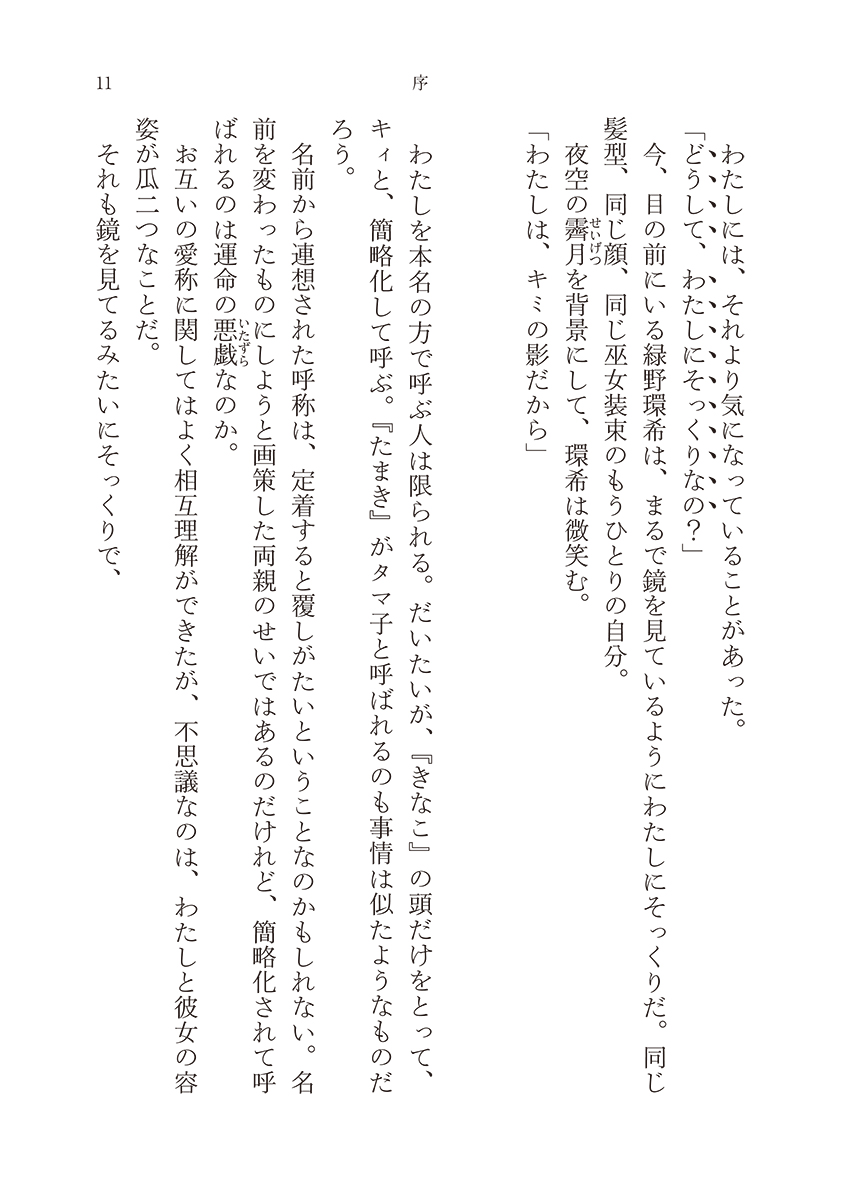 わたしを本名の方で呼ぶ人は限られる。だいたいが、『きなこ』の頭だけをとって、
キィと、簡略化して呼ぶ。『たまき』がタマ子と呼ばれるのも事情は似たようなものだ
ろう。
名前から連想された呼称は、定着すると覆しがたいということなのかもしれない。名
前を変わったものにしようと画策した両親のせいではあるのだけれど、簡略化されて呼
ばれるのは運命の悪戯なのか。
いたずら
お互いの愛称に関してはよく相互理解ができたが、不思議なのは、わたしと彼女の容
姿が瓜二つなことだ。
それも鏡を見てるみたいにそっくりで、
わたしには、それより気になっていることがあった。
「どうして、わたしにそっくりなの？」
今、目の前にいる緑野環希は、まるで鏡を見ているようにわたしにそっくりだ。同じ
髪型、同じ顔、同じ巫女装束のもうひとりの自分。
夜空の霽月を背景にして、環希は微笑む。
せいげつ
「わたしは、キミの影だから」
序
11